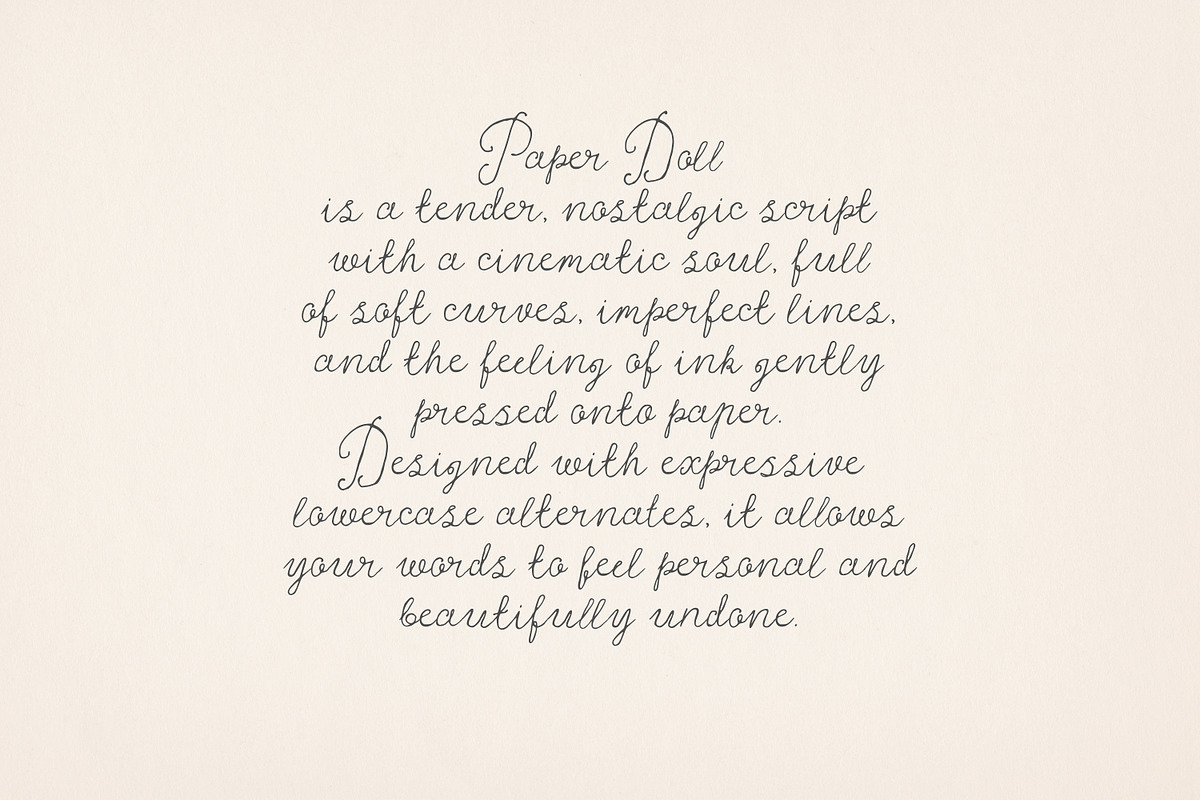 Paper Doll
is a tender, nostalgic script
with a cinematic soul, full
of soft curves, imperfect lines,
and the feeling of ink gently
pressed onto paper.
Designed with expressive
lowercase alternates, it allows
your words to feel personal and
beautifully undone.